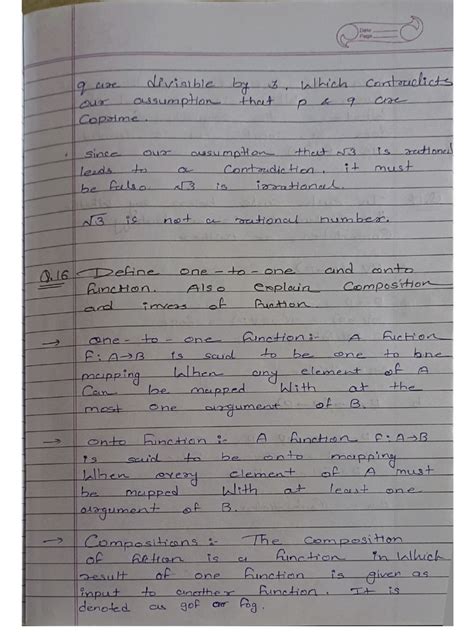 Date
Page
q are divisible by 3, which contradicts
our assumption that p & q are
coprime.
since our assumption that √3 is rational
leads to a contradiction. it must
be false. √3 is irrational.
√3 is not a rational number.
Q.16 Define one-to-one and onto
function. Also explain composition
and invers of fuction
→ one-to-one function:- A fuction
F: A→B is said to be one to one
mapping When any element of A
Can be mapped With at the
most one argument of B.
→ onto function:- A function F: A→B
is said to be onto mapping
When every element of A must
be mapped With at least one
argument of B.
→ Compositions:- The composition
of is a function in Which
result of one function is given as
input to another function. It is
denoted as gof or fog.